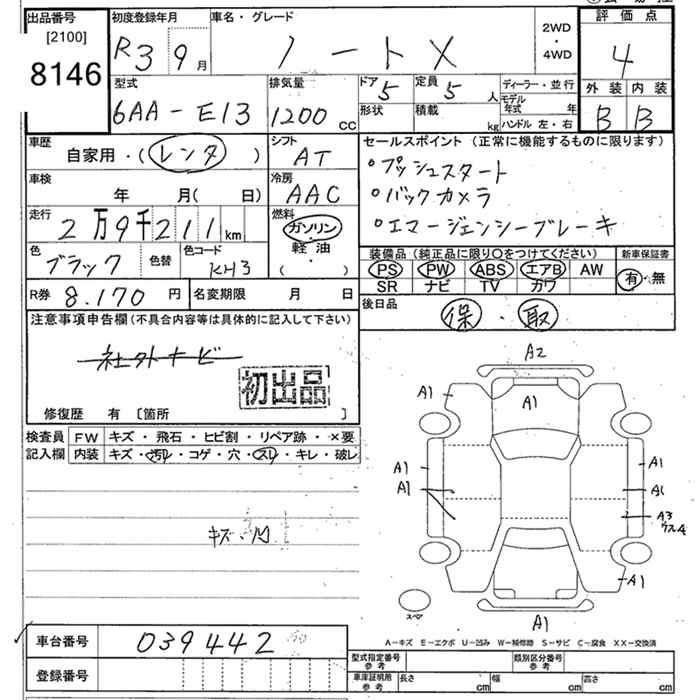 出品番号
[2100]
8146
初度登録年月
R3 9月
車名・グレード
ノートX
2WD
・
4WD
評価点
4
外装 内装
B B
型式
6AA-E13
排気量
1200 cc
ドア 5
形状
定員 5 人
積載 kg
ディーラー・並行
モデル年式 年
ハンドル 左・右
車歴
自家用・(レンタ)
シフト
AT
セールスポイント (正常に機能するものに限ります)
・プッシュスタート
・バックカメラ
・エマージェンシーブレーキ
車検
年 月(日)
冷房
AAC
走行
2万9千211km
燃料
ガソリン・
軽油・
( )
色
ブラック
色替
色コード
KH3
装備品(純正品に限り○をつけてください)
PS PW ABS エアB AW
SR ナビ TV カワ
新車保証書
有・無
R券 8.170 円
名変期限 月 日
後日品
保・取
注意事項申告欄(不具合内容等は具体的に記入して下さい)
社外ナビ
初出品
修復歴 有 [箇所 ]
検査員
記入欄
FW キズ・飛石・ヒビ割・リペア跡・×要
内装 キズ・汚レ・コゲ・穴・スレ・キレ・破レ
キズ・凹
A2
A1
A1
A1
A1
A1
A1
A3
ワスレ4
A1
スペア
A1
A-キズ E-エクボ U-凹み W-補修跡 S-サビ C-腐食 XX-交換済
車台番号 039442
登録番号
型式指定番号
参考
類別区分番号
参考
車庫証明用
参考
長さ cm 幅 cm 高さ cm